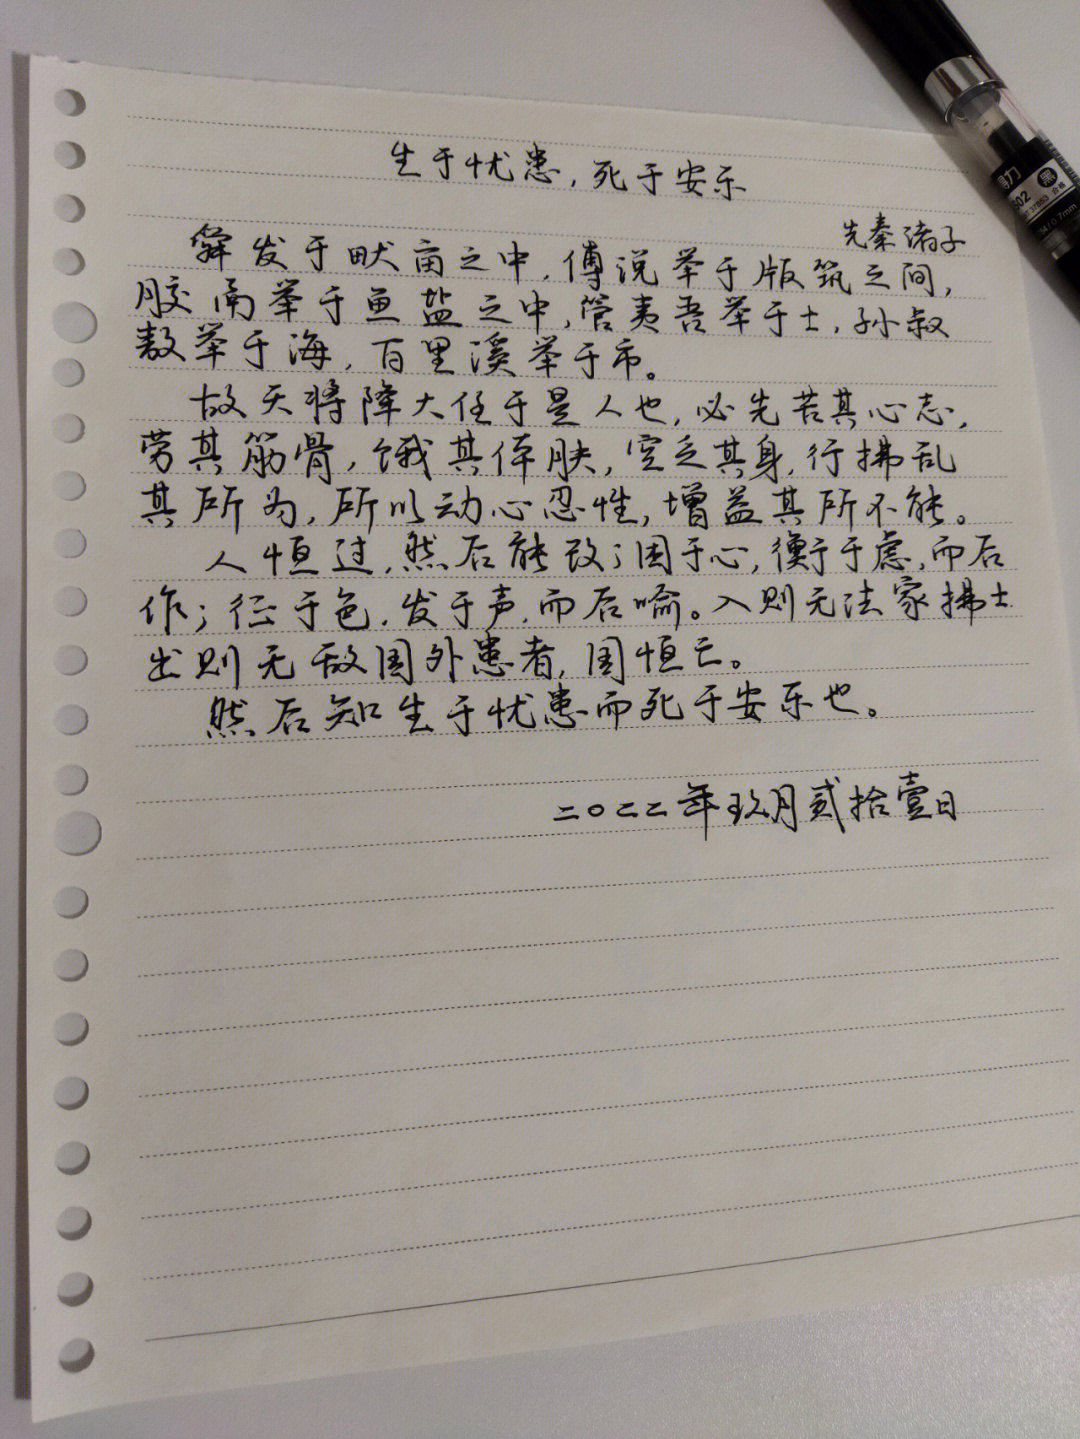 生于忧患，死于安乐
先秦诸子
舜发于畎亩之中，傅说举于版筑之间，
胶鬲举于鱼盐之中，管夷吾举于士，孙叔
敖举于海，百里溪举于市。
故天将降大任于是人也，必先苦其心志，
劳其筋骨，饿其体肤，空乏其身，行拂乱
其所为，所以动心忍性，增益其所不能。
人恒过，然后能改；困于心，衡于虑，而后
作；征于色，发于声，而后喻。入则无法家拂士
出则无敌国外患者，国恒亡。
然后知生于忧患而死于安乐也。
二〇二二年玖月贰拾壹日
得力
黑
合格
0.7mm